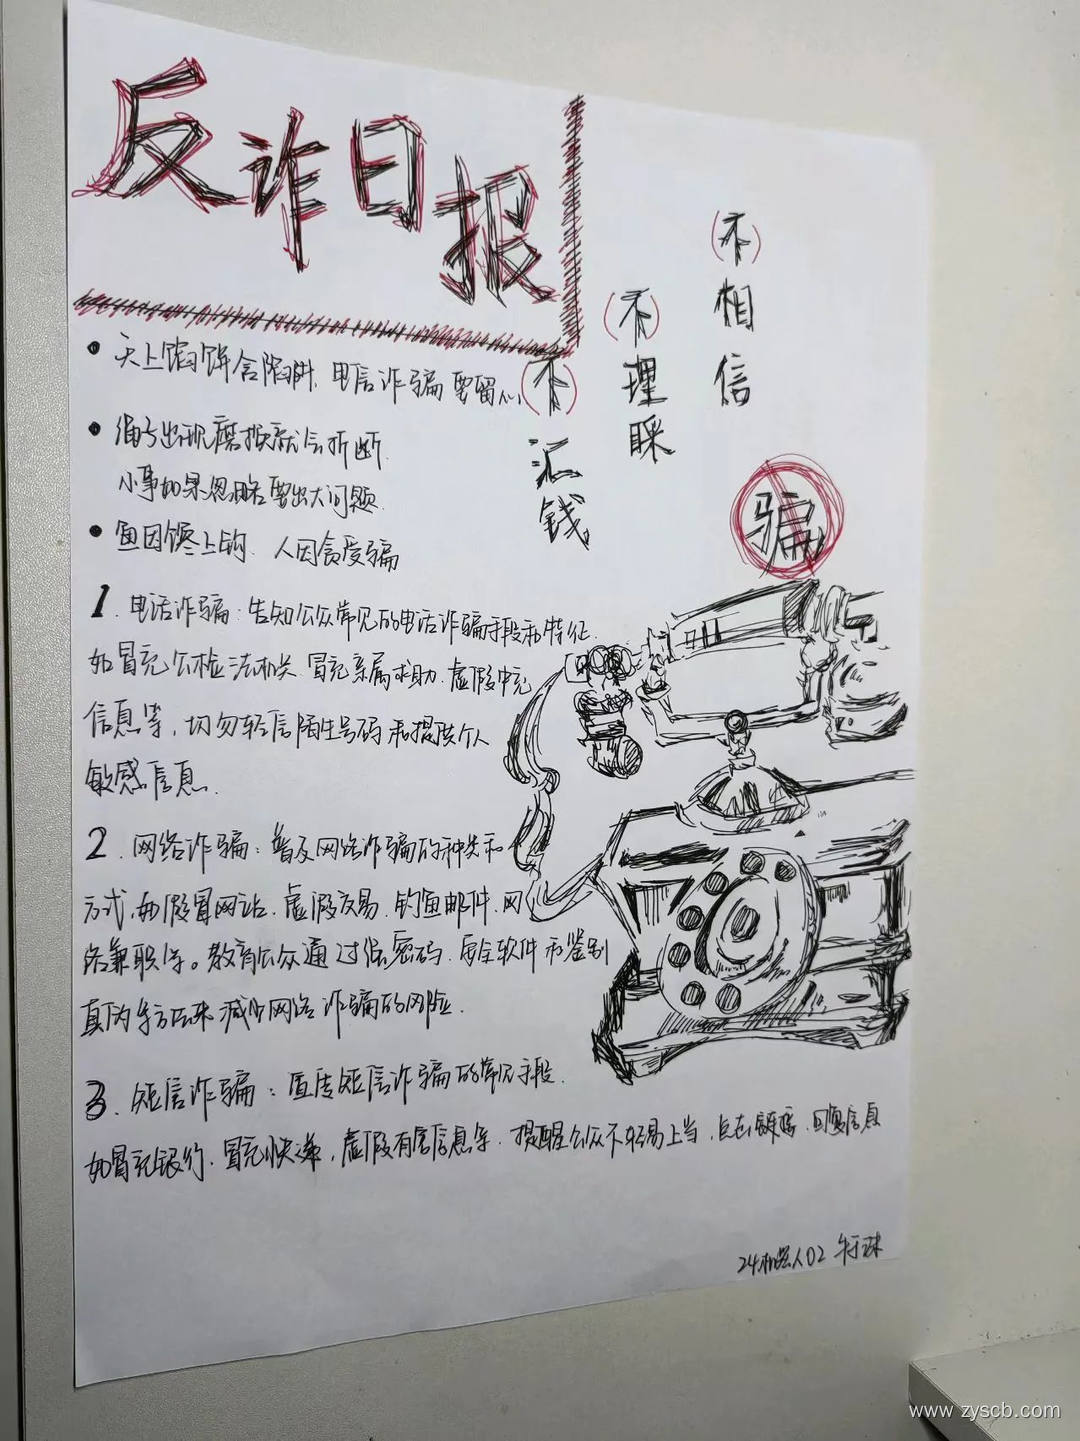 反诈日报
(不)相信
(不)理睬
(不)汇钱
骗
• 天上馅饼含陷阱，电信诈骗要留心
• 绳子出现磨损就会折断
小事如果忽略要出大问题
• 鱼因馋上钩、人因贪受骗
1. 电话诈骗：告知公众常见的电话诈骗手段和特征
如冒充公检法机关、冒充亲属求助、虚假中充
信息等，切勿轻信陌生号码和提供个人
敏感信息.
2. 网络诈骗：普及网络诈骗的种类和
方式，如假冒网站、虚假交易、钓鱼邮件、网
络兼职等。教育公众通过保密码、安全软件和鉴别
真伪等方法来减少网络诈骗的风险.
3. 短信诈骗：宣传短信诈骗的常见手段.
如冒充银行、冒充快递，虚假有害信息等. 提醒公众不轻易上当，点击链接、回复信息
24机器人02
www.zyscb.com